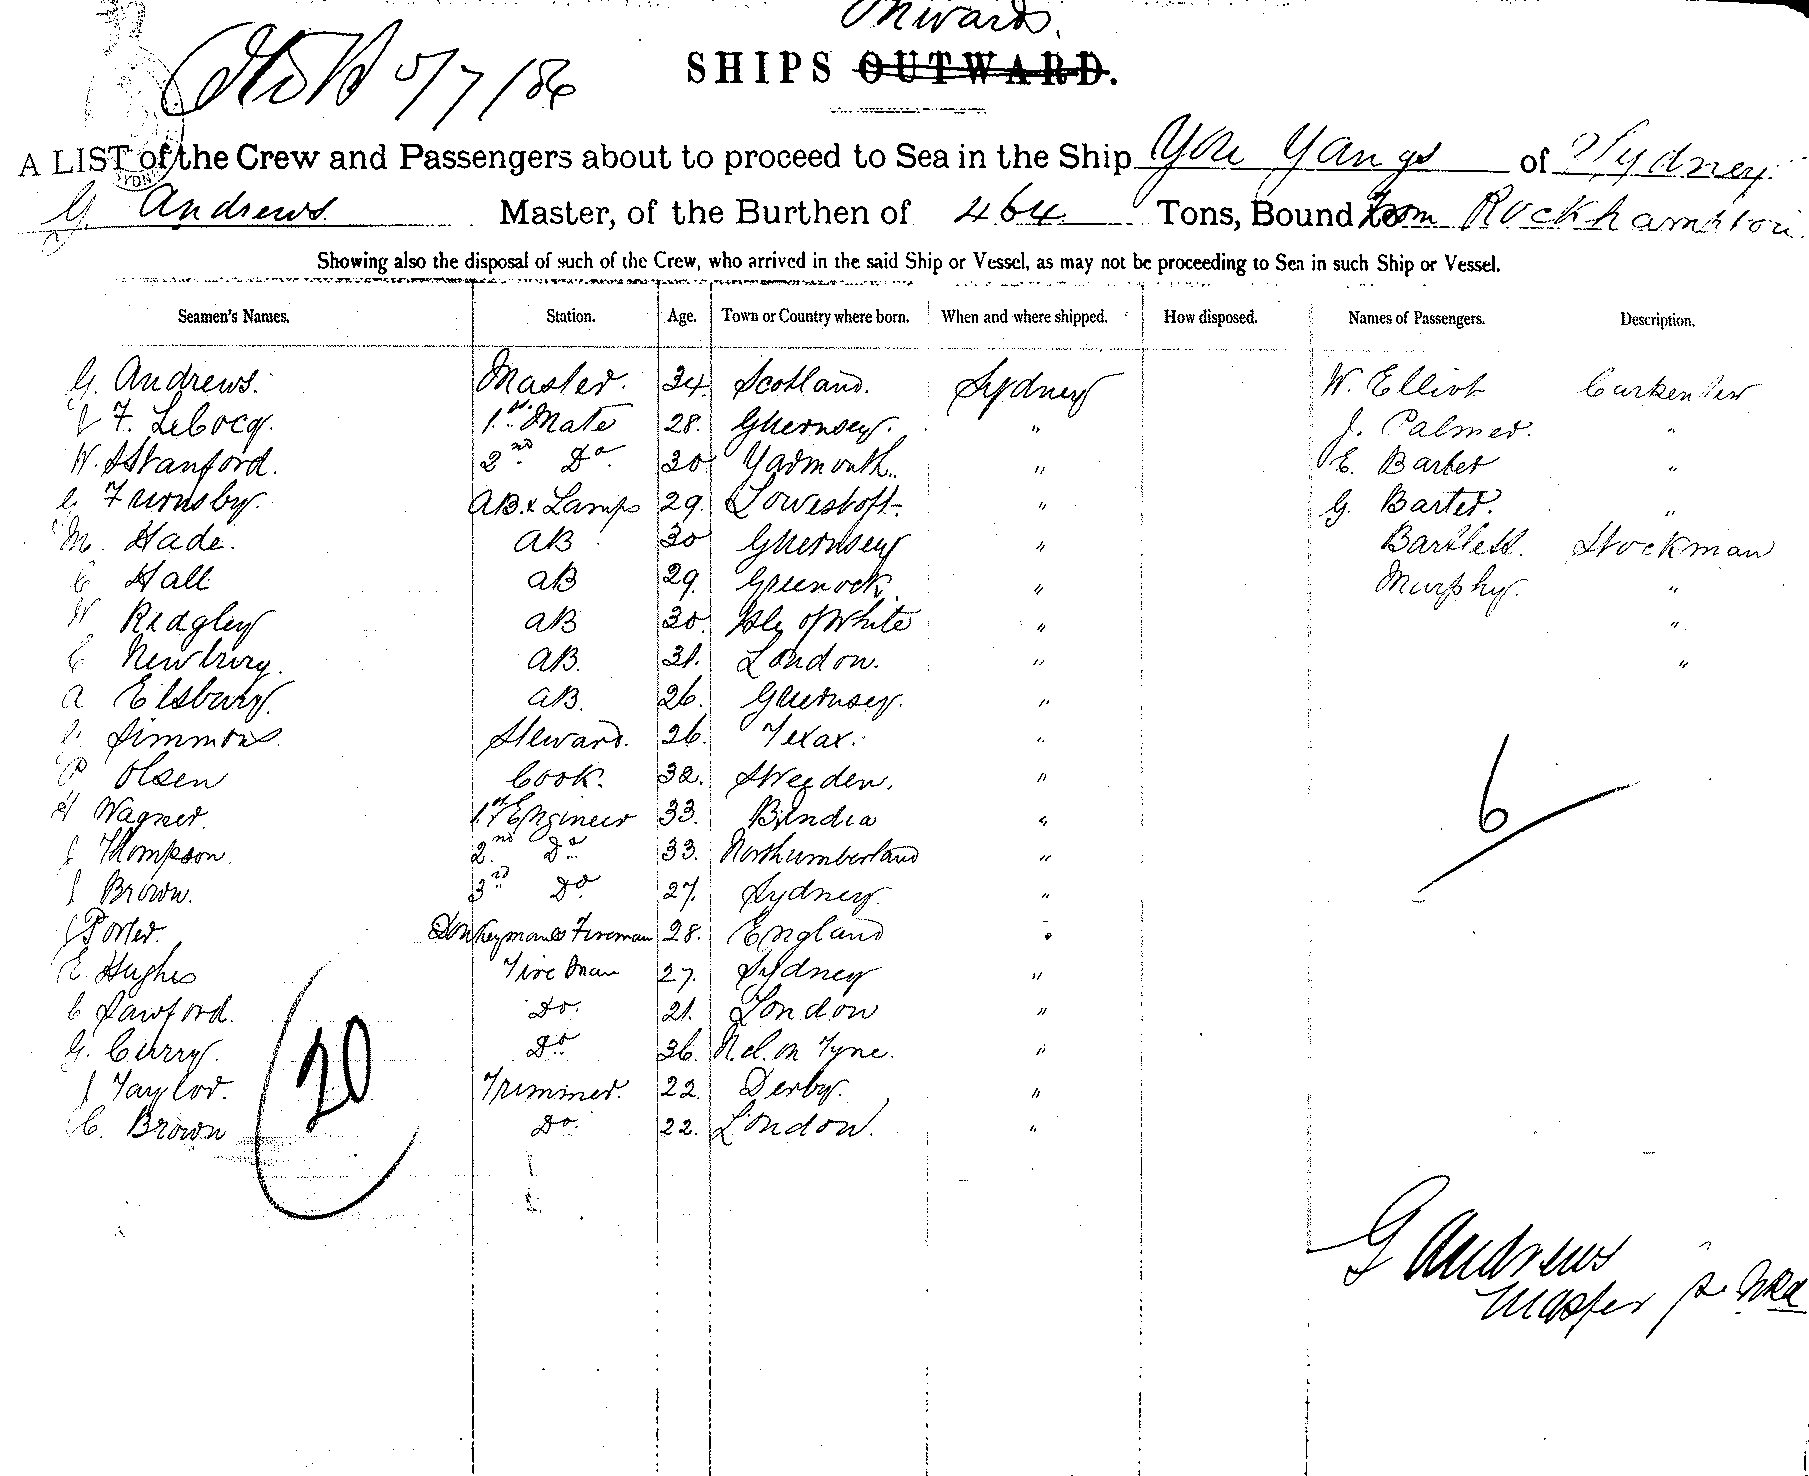 Inwards.
5/7/86
SHIPS OUTWARD.
A LIST of the Crew and Passengers about to proceed to Sea in the Ship You Yangs of Sydney
G. Andrews. Master, of the Burthen of 464 Tons, Bound from Rockhampton
Showing also the disposal of such of the Crew, who arrived in the said Ship or Vessel, as may not be proceeding to Sea in such Ship or Vessel.
Seamen's Names. Station. Age. Town or Country where born. When and where shipped. How disposed. Names of Passengers. Description.
G. Andrews. Master. 34. Scotland. Sydney W. Elliot Carpenter
J F. Lebocq. 1st Mate 28. Guernsey. " J. Palmer. "
W. Stranford. 2nd Do. 30 Yarmouth. " E. Barter "
G Furnsby. AB. & Lamps 29. Lowestoft. " G. Barter. "
M. Hade. AB 30 Guernsey " Bartlett. Stockman
C Hall AB 29. Greenock. " Murphy. "
W Redgley AB 30. Isle of White " "
C Newbury. AB. 31. London. " "
A Elsbury. AB. 26. Guernsey. "
Simmons. Steward. 26. Texas. "
P Olsen Cook. 32. Sweeden. "
H Wagner. 1st Engineer 33. B. India "
J Thompson. 2nd Do 33. Northumberland "
J Brown. 3rd Do 27. Sydney. "
J Porter. Donkeyman & Fireman 28. England "
E. Hughes Fireman 27. Sydney "
C Sawford. Do. 21. London "
G. Curry. Do 36. N.cl. on Tyne. "
J Taylor. Trimmer. 22. Derby. "
C. Brown Do. 22. London. "
20
6
G Andrews
Master